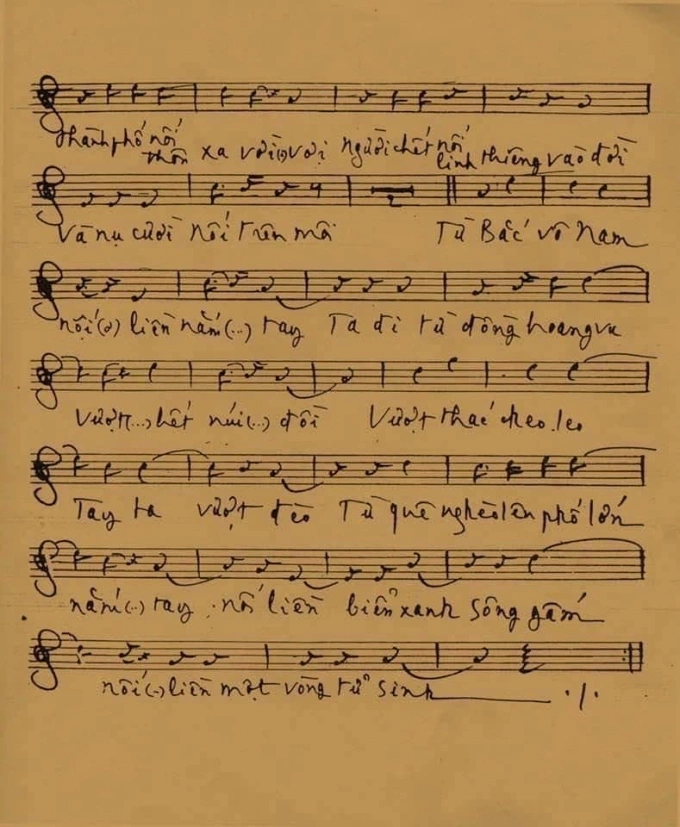 thành phố nối thôn xa vời(.)vợi người chết nối linh thiêng vào đời
và nụ cười nối trên môi Từ Bắc vô Nam
nối(.) liền nắm(...) tay Ta đi từ đồng hoang vu
Vượt(...) hết núi(...) đồi Vượt thác cheo leo
Tay ta vượt đèo Từ quê nghèo lên phố lớn
nắm(..) tay nối liền biển xanh sông gấm
nối(..) liền một vòng tử sinh